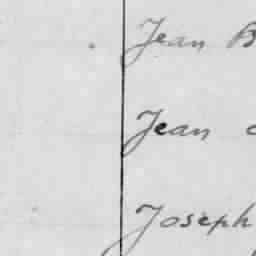 Jean B
Jean
Joseph